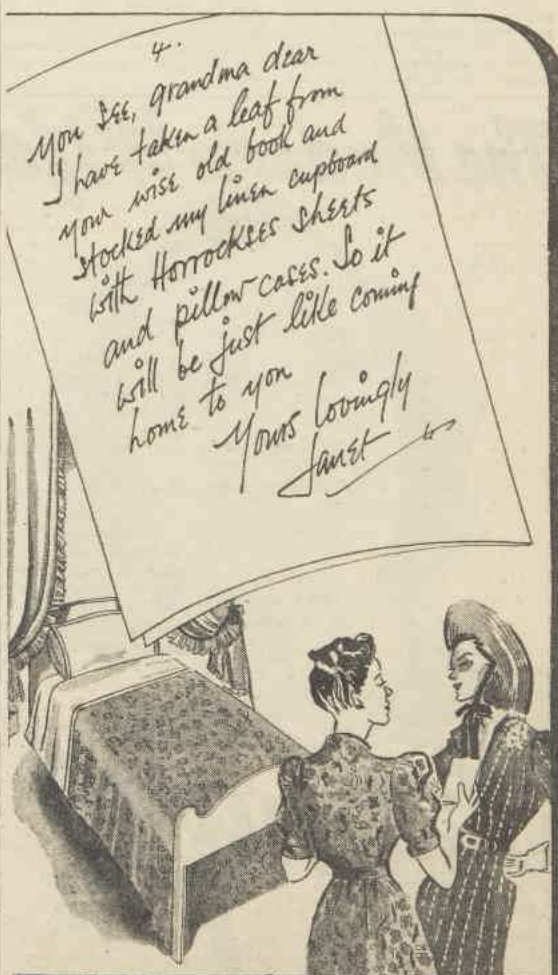 4.
You see, grandma dear
I have taken a leaf from
your wise old book and
stocked my linen cupboard
with Horrockses sheets
and pillow cases. So it
will be just like coming
home to you
Yours lovingly
Janet